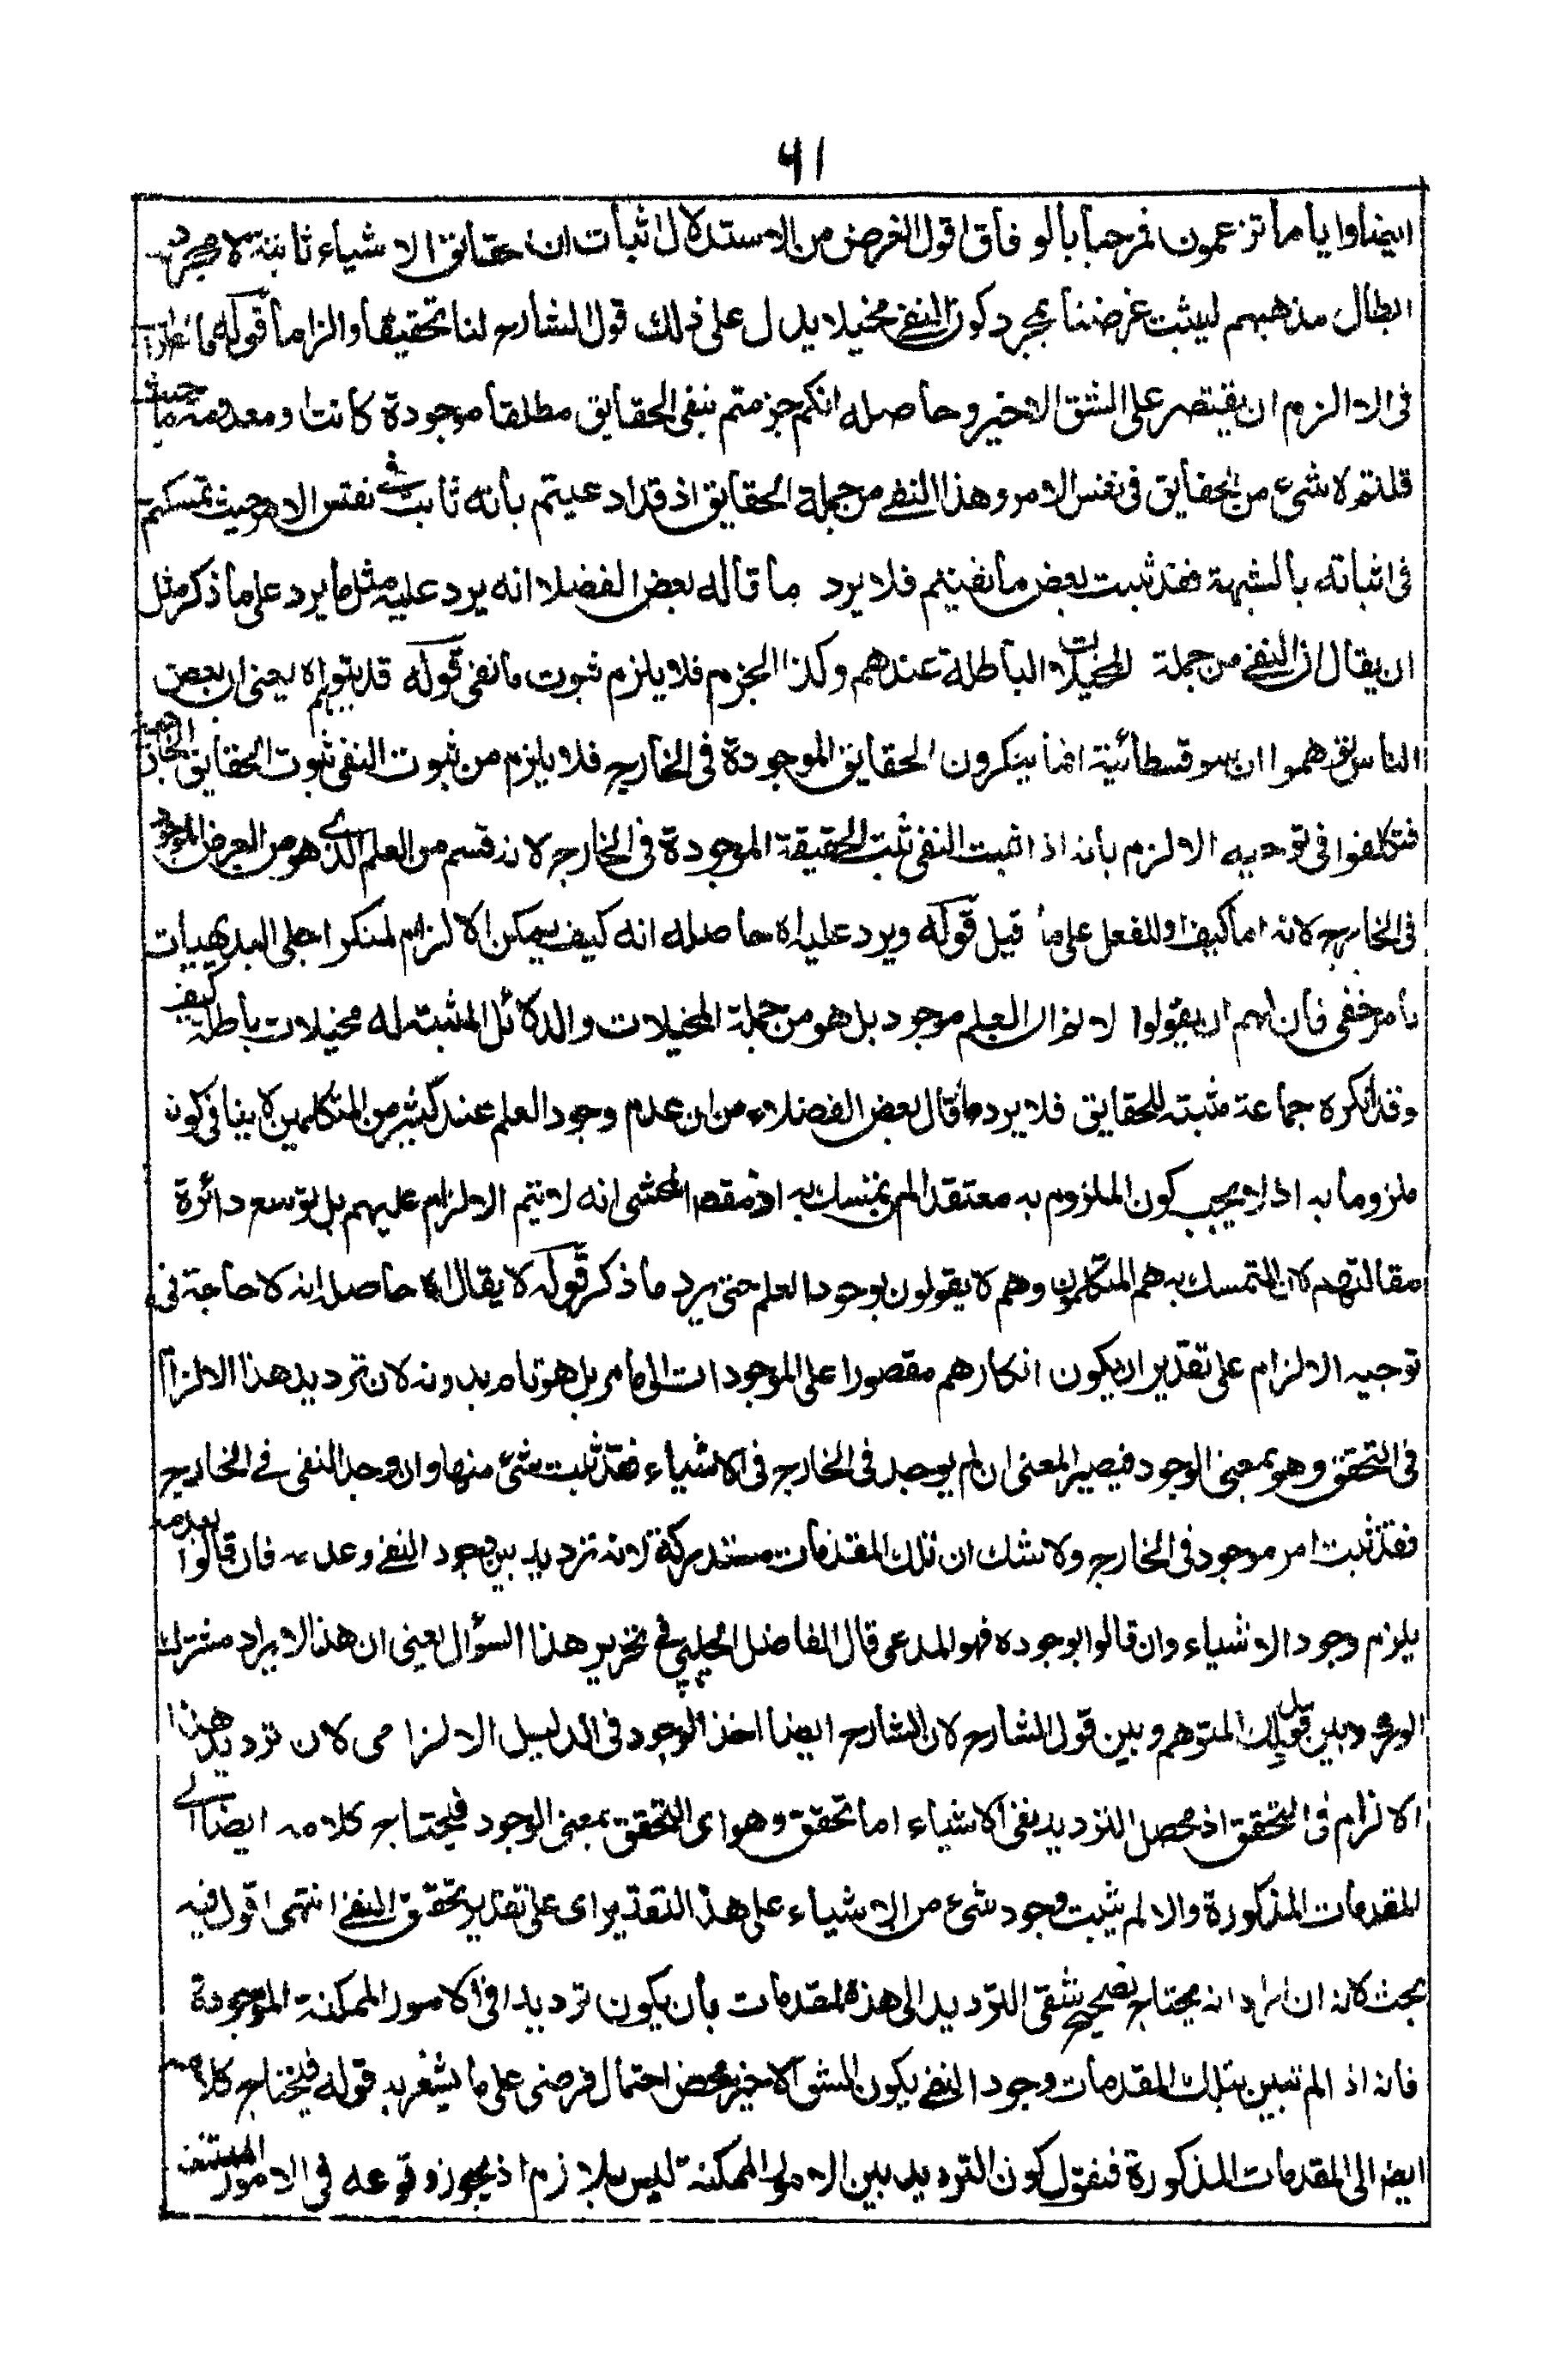 ٦١
ايضا وايا ما تزعمون فمرحبا بالوفاق اقول الغرض من الاستدلال اثبات ان حقايق الاشياء ثابتة لا مجرد
ابطال مذهبهم ليثبت غرضنا بمجرد كون النفى مخيلا يدل على ذلك قول الشارح لنا تحقيقا والزاما قوله
فى الالزام ان يقتصر على الشق الاخير وحاصله انكم جزمتم بنفى الحقايق مطلقا موجودة كانت او معدومة حيث
قلتم لا شئ من الحقايق فى نفس الامر وهذا النفى من جملة الحقايق اذ قد ادعيتم بانه ثابت فى نفس الامر حيث تمسكتم
فى اثباته بالشبهة فقد ثبت بعض ما نفيتم فلا يرد ما قاله بعض الفضلا انه يرد عليه مثل ما يرد على ما ذكر مثل
ان يقال ان النفى من جملة المخيلات الباطلة عندهم وكذا الجزم فلا يلزم ثبوت ما نفى قوله قد يتوهم اه يعنى ان بعض
الناس توهموا ان سوفسطائية انما ينكرون الحقايق الموجودة فى الخارج فلا يلزم من ثبوت النفى ثبوت الحقايق الخارجية
فتكلفوا فى توجيه الالزم بانه اذا ثبت النفى ثبت الحقيقة الموجودة فى الخارج لانه قسم من العلم الذى هو من العرض الموجود
فى الخارج لانه اما كيف او انفعل على ما قيل قوله ويرد عليه اه حاصله انه كيف يمكن الالزام لمنكر اجلى البديهيات
بامر خفى فان لهم ان يقولوا لا نم ان العلم موجود بل هو من جملة المخيلات والدلائل المثبتة له مخيلات باطلة كيف
وقد انكره جماعة مثبتة للحقايق فلا يرد ما قال بعض الفضلاء من ان عدم وجود العلم عند كثير من المتكلمين لا ينافى كونه
ملزوما به اذ لا يجب كون الملزوم به معتقدا لم يتمسك به اذ مقص المحشى انه لا يتم الالزام عليهم بل توسع دائرة
مقالتهم لان المتمسك به هم المتكلمون وهم لا يقولون بوجود العلم حتى يرد ما ذكر قوله لا يقال اه حاصله انه لا حاجة فى
توجيه الالزام على تقدير ان يكون انكارهم مقصورا على الموجودات الى ما مر بل هو تام بدونه لان ترديد هذا الالزام
فى التحقق وهو بمعنى الوجود فيصير المعنى ان لم يوجد فى الخارج فى الاشياء فقد ثبت شئ منها وان وجد النفى فى الخارج
فقد ثبت امر موجود فى الخارج ولا شك ان تلك المقدمات مستدركة لانه ترديد بين وجود النفى وعدمه فان قالوا بعدمه
يلزم وجود الاشياء وان قالوا بوجوده فهو المدعى قال الفاضل الچلپى فى تحرير هذا السؤال يعنى ان هذا الايراد مشترك
الورود بين قول ذلك المتوهم وبين قول الشارح لان الشارح ايضا اخذ الوجود فى الدليل الالزامى لان ترديد هذا
الالزام فى التحقق اذ محصل الترديد نفى الاشياء اما تحقق وهو اى التحقق بمعنى الوجود فيحتاج كلامه ايضا الى
المقدمات المذكورة والا لم يثبت وجود شئ من الاشياء على هذا التقدير اى على تقدير تحقق النفى انتهى اقول فيه
بحث لانه ان اراد انه يحتاج تصحيح شقى الترديد الى هذه المقدمات بان يكون ترديدا فى الامور الممكنة الموجودة
فانه اذا لم تبين بتلك المقدمات وجود النفى يكون الشق الاخير محض احتمال فرضى على ما يشعر به قوله فيحتاج كلامه
ايضا الى المقدمات المذكورة فنقول كون الترديد بين الامور الممكنة ليس بلازم اذ يجوز وقوعه فى الامور